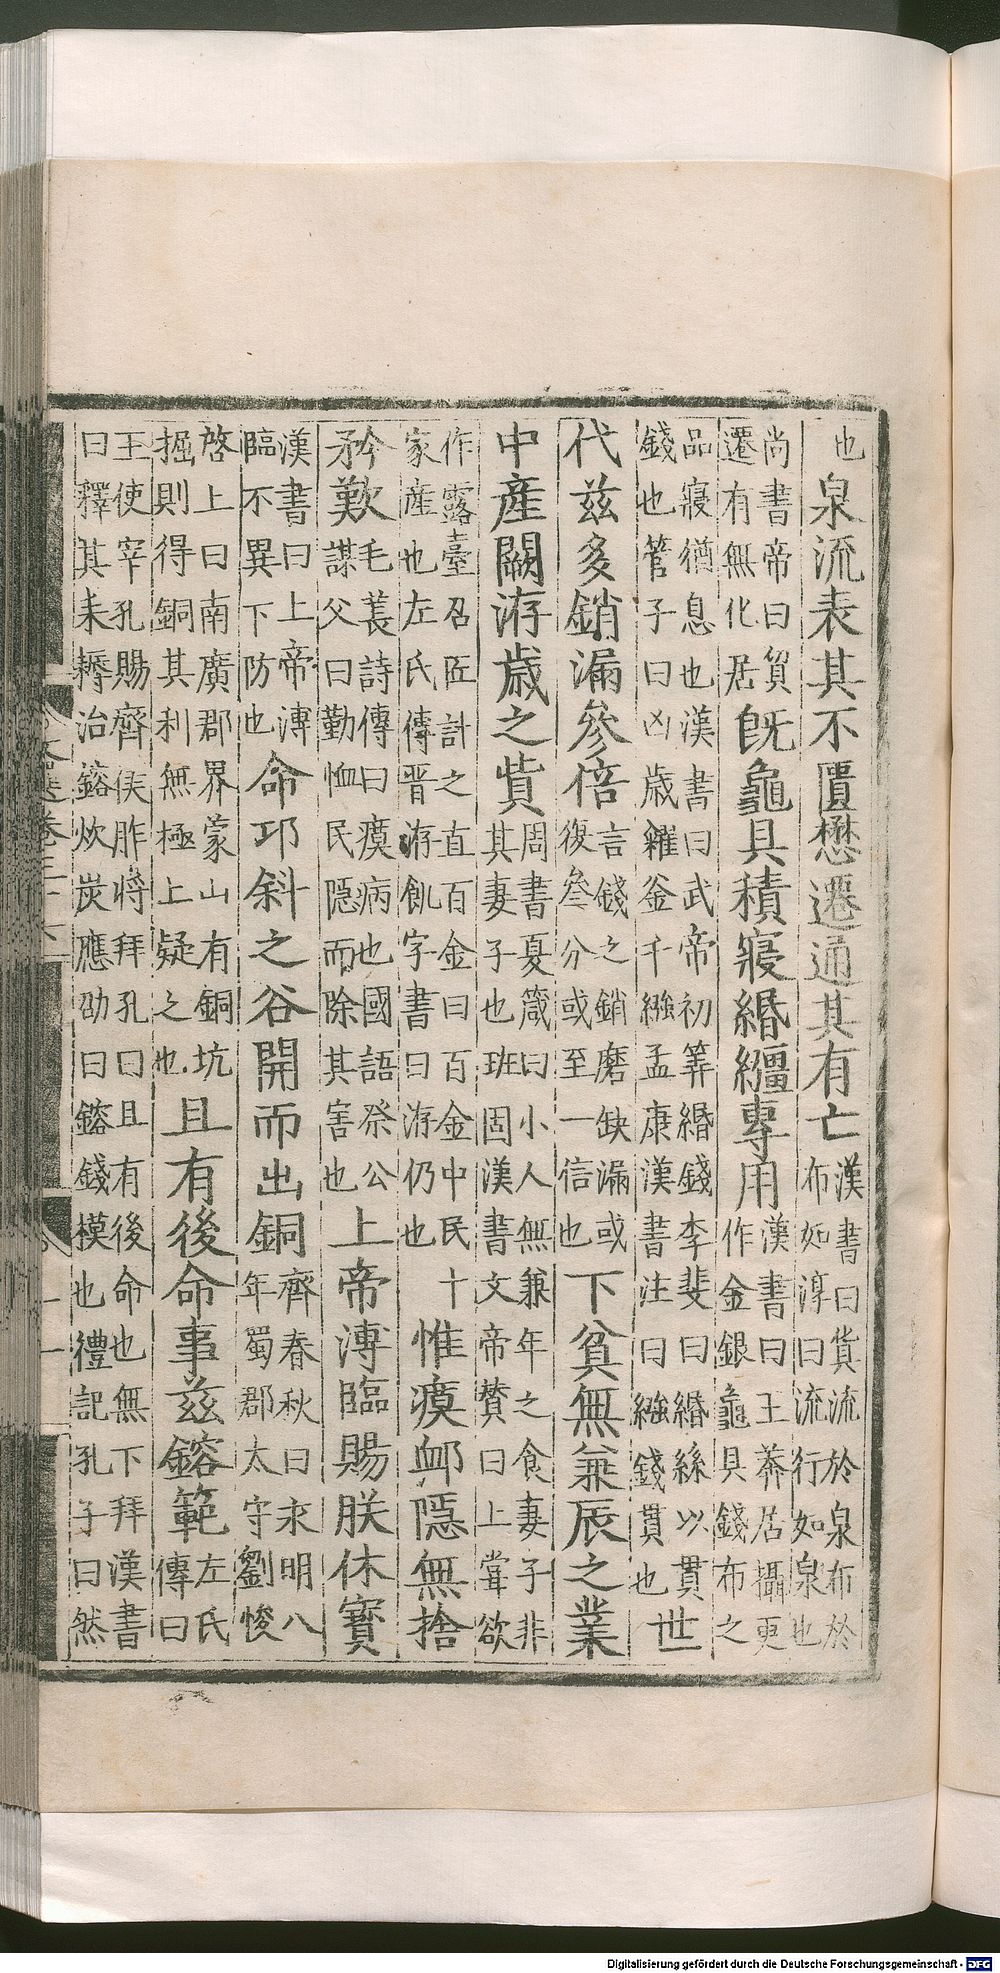 也泉流表其不匱懋遷通其有亡漢書曰貨流於泉布於布如淳曰流行如泉也
尚書帝曰貿遷有無化居既龜貝積寢緡繦專用漢書曰王莽居攝更作金銀龜貝錢布之
品寢猶息也漢書曰武帝初筭緡錢李斐曰緡絲以貫錢也管子曰凶歲糴釜千繦孟康漢書注曰繦錢貫也世
代茲多銷漏參倍言錢之銷磨缺漏或復叅分或至一信也下貧無兼辰之業
中産闕洊歲之貲周書夏箴曰小人無兼年之食妻子非其妻子也班固漢書文帝贊曰上嘗欲
作露臺召匠計之直百金曰百金中民十家産也左氏傳晋洊飢字書曰洊仍也惟瘼卹隱無捨
矜歎毛萇詩傳曰瘼病也國語祭公謀父曰勤恤民隱而除其害也上帝溥臨賜朕休寶
漢書曰上帝溥臨不異下防也命邛斜之谷開而出銅齊春秋曰永明八年蜀郡太守劉悛
啓上曰南廣郡界蒙山有銅坑掘則得銅其利無極上疑之也且有後命事茲鎔範左氏傳曰
王使宰孔賜齊侯胙將拜孔曰且有後命也無下拜漢書曰釋其耒耨冶鎔炊炭應劭曰鎔錢模也禮記孔子曰然
文選卷三十六
十一
Digitalisierung gefördert durch die Deutsche Forschungsgemeinschaft - DFG